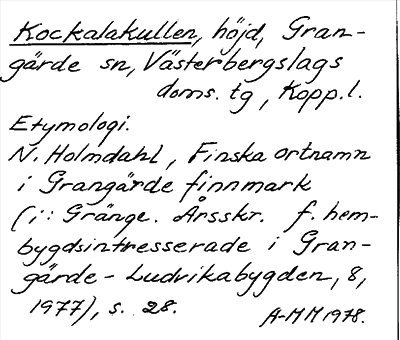 Kockalakullen, höjd, Gran-
gärde sn, Västerbergslags
doms. tg, Kopp.l.
Etymologi.
N. Holmdahl, Finska ortnamn
i Grangärde finnmark
(i: Gränge. Årsskr. f. hem-
bygdsintresserade i Gran-
gärde - Ludvikabygden, 8,
1977), s. 28.
A-MM 1978.